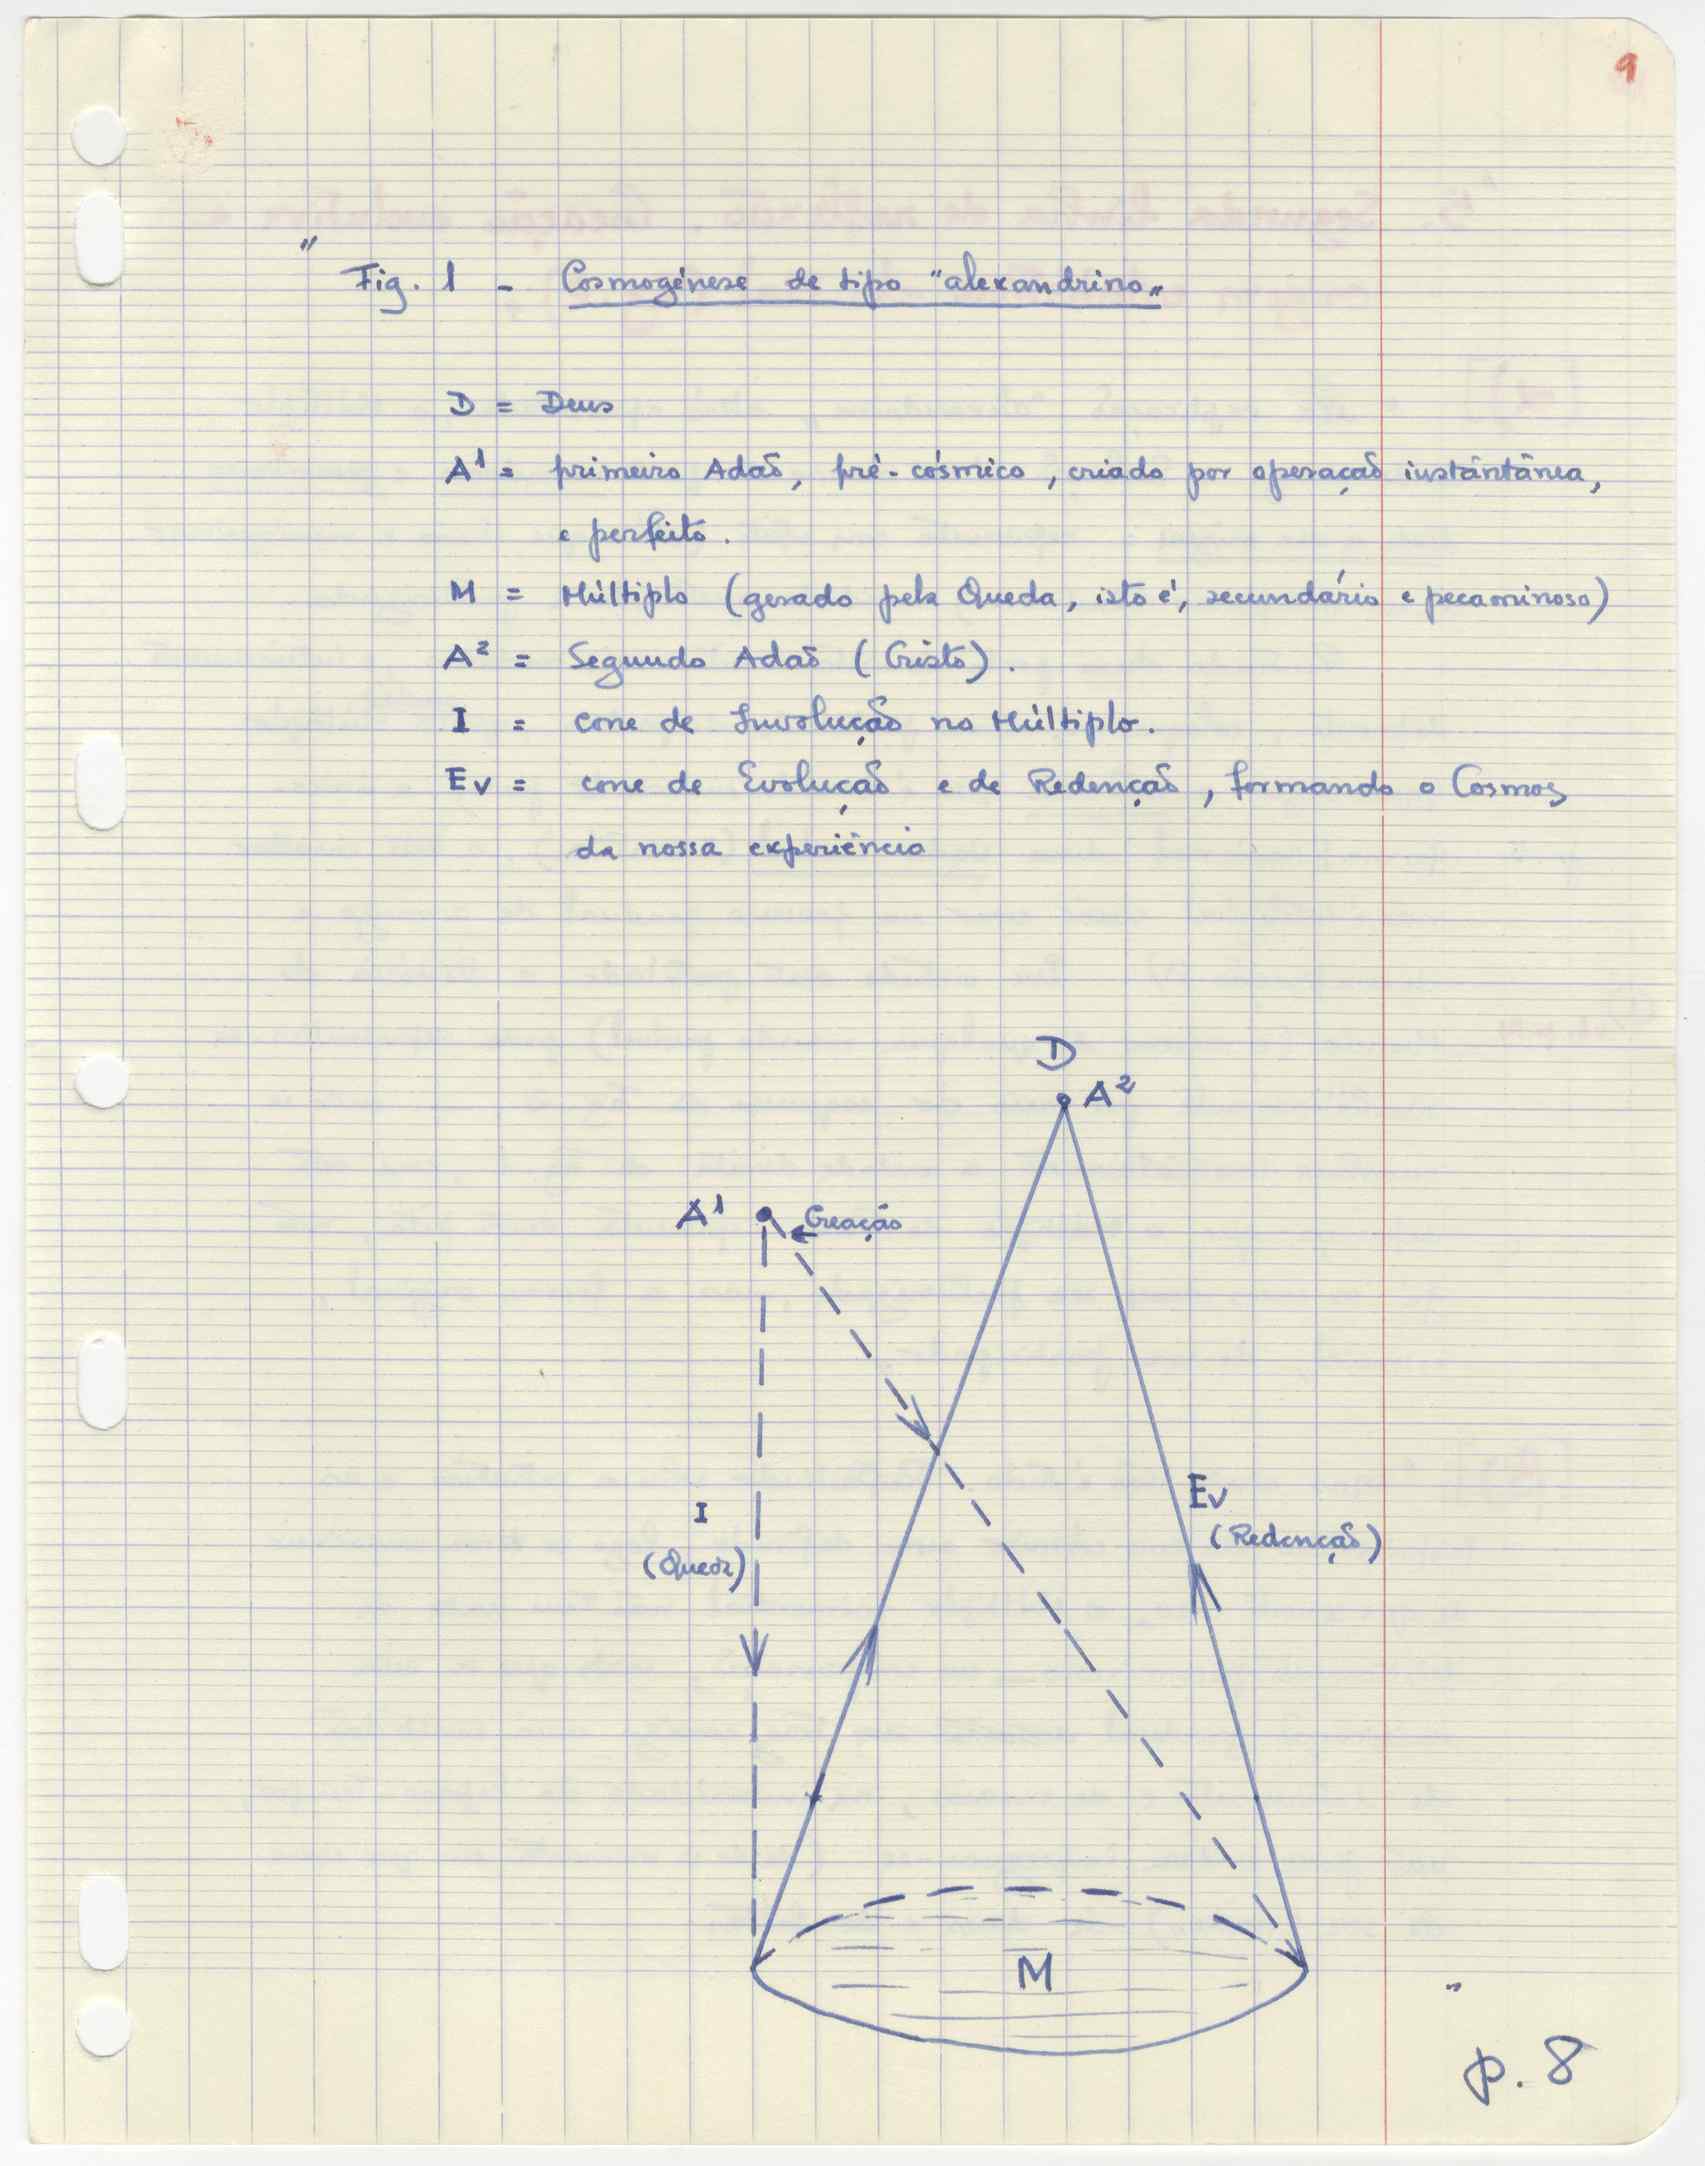 9
" Fig. 1 - Cosmogénese de tipo "alexandrino"
D = Deus
A¹ = primeiro Adão, pré-cósmico, criado por operação instântânea,
e perfeito.
M = Múltiplo (gerado pela Queda, isto é, secundário e pecaminoso)
A² = Segundo Adão (Cristo).
I = cone de Involução no Múltiplo.
Ev = cone de Evolução e de Redenção, formando o Cosmos
da nossa experiência
D
A²
A¹
Creação
I
(Queda)
Ev
(Redenção)
M
"
p. 8